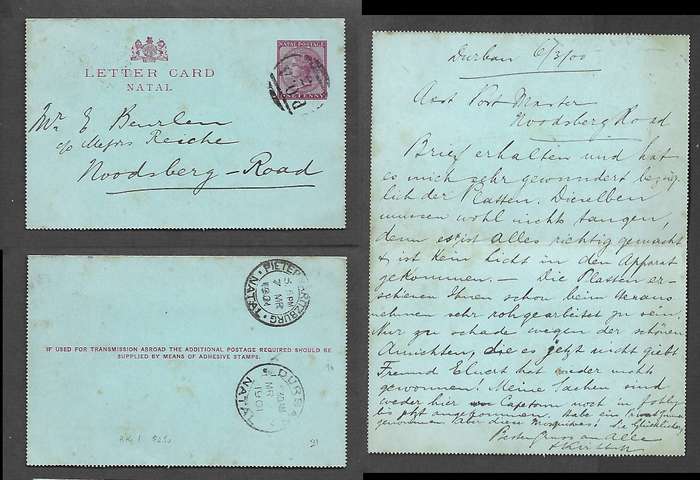 LETTER CARD
NATAL
NATAL POSTAGE
ONE PENNY
Mr E Beurlen
c/o Messrs Reiche
Noodsberg-Road
PIETERMARITZBURG · NATAL
7 MR
DURBAN
MR
1901
NATAL
IF USED FOR TRANSMISSION ABROAD THE ADDITIONAL POSTAGE REQUIRED SHOULD BE
SUPPLIED BY MEANS OF ADHESIVE STAMPS.
Durban 6/3/00
Asst Post Master
Noodsberg Road
Brief erhalten und hat
es mich sehr gewundert bezüg
lich der Platten. Dieselben
müssen wohl nichts taugen,
denn es ist alles richtig gemacht
& ist kein Licht in den Apparat
gekommen. — Die Platten er-
schienen Ihnen schon beim Heraus
nehmen sehr roh gearbeitet zu sein.
Nur zu schade wegen der schönen
Ansichten, die es jetzt nicht giebt
Freund Elvert hat wieder nichts
gewonnen! Meine Sachen sind
weder hier Capetown noch in
bis jetzt angekommen. Habe ein
genommen aber diese Mosquitos!
Besten Gruss an Alle